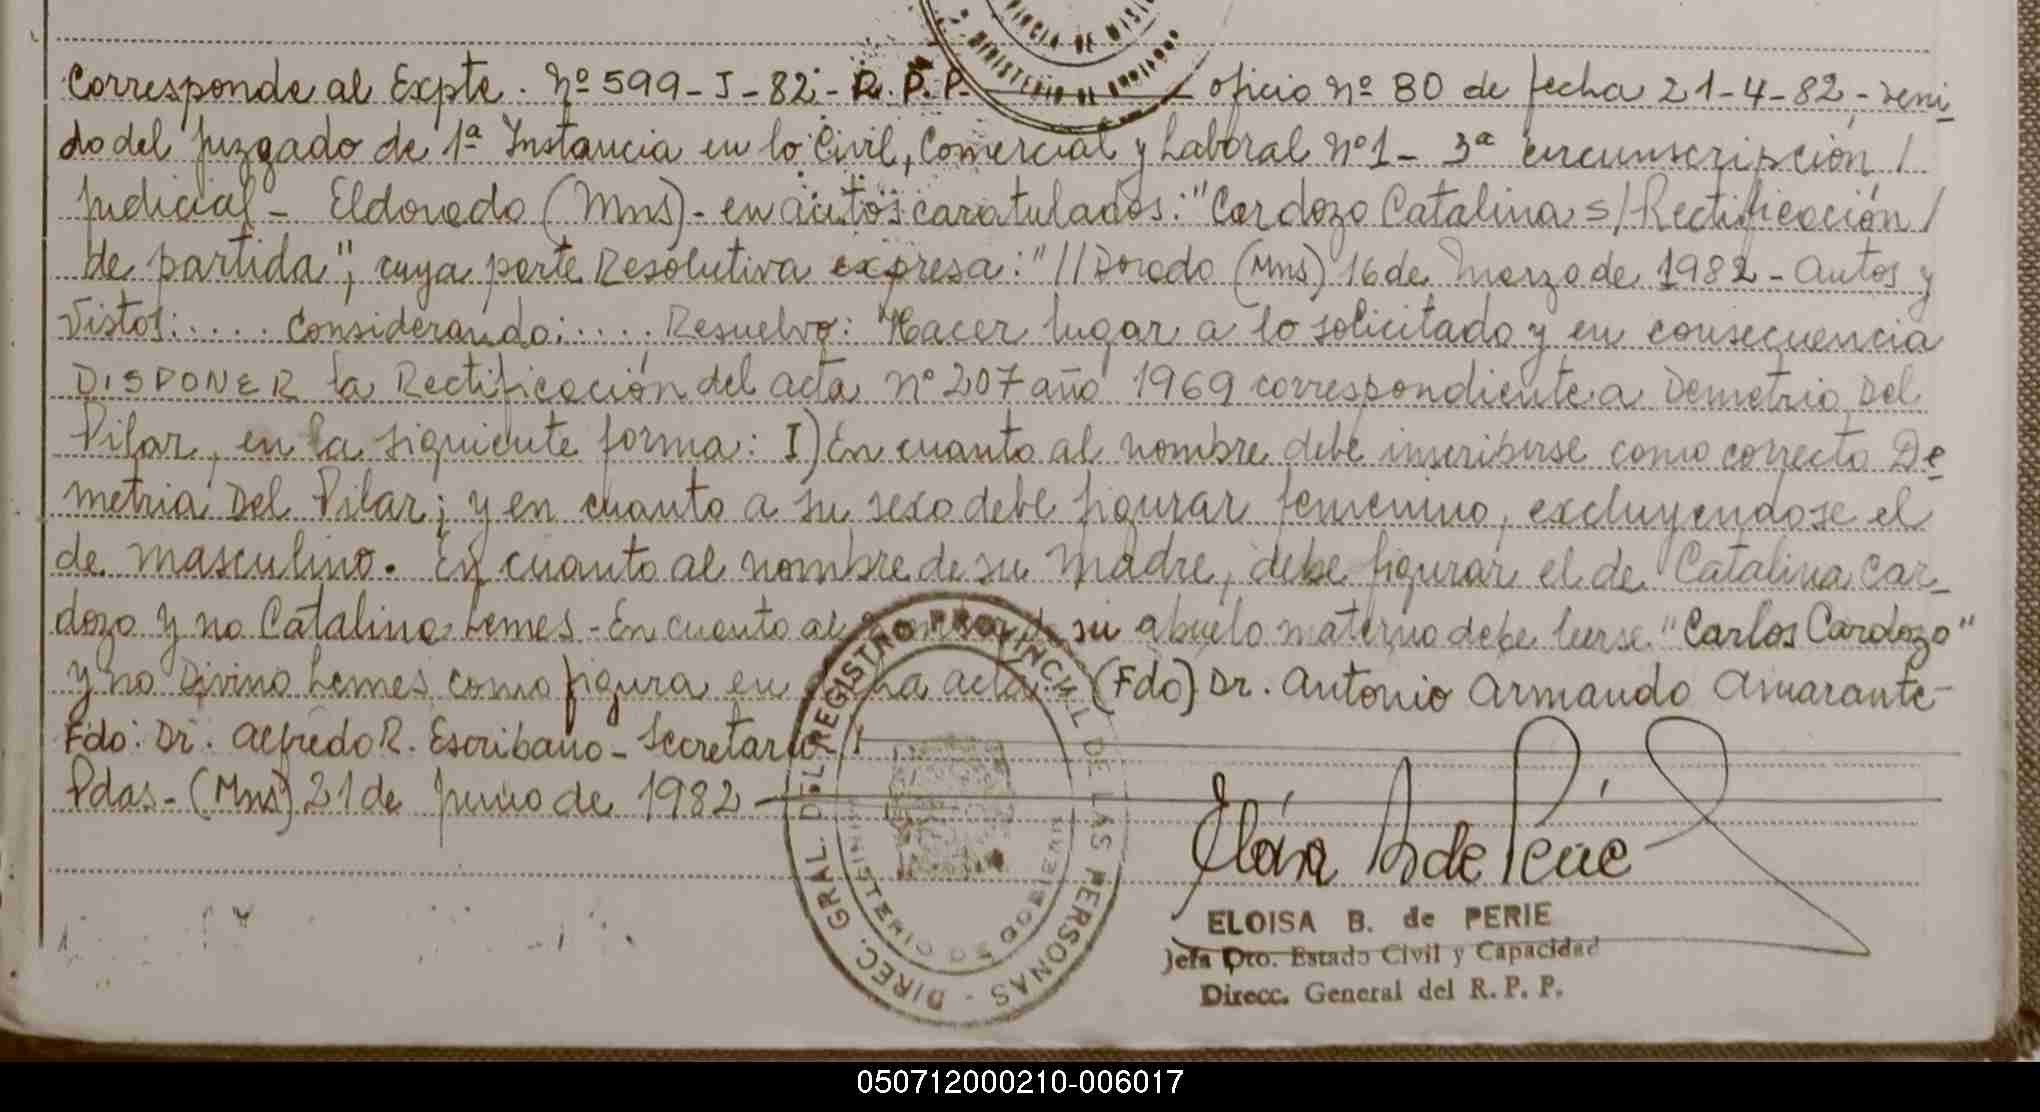 PROVINCIA DE MISIONES
MINISTERIO DE GOBIERNO
Corresponde al Expte. Nº 599-J-82-R.P.P. oficio nº 80 de fecha 21-4-82-veni
do del Juzgado de 1ª Instancia en lo Civil, Comercial y Laboral Nº1- 3ª circunscripción /
Judicial - Eldorado (Mns)- en autos caratulados: "Cardozo Catalina s/ Rectificación /
de partida"; cuya parte Resolutiva expresa: "//Dorado (Mns) 16 de Marzo de 1982 - Autos y
Vistos:..... Considerando:..... Resuelvo: "Hacer lugar a lo solicitado y en consecuencia
DISPONER la Rectificación del acta nº 207 año 1969 correspondiente a Demetrio Del
Pilar, en la siguiente forma: I) En cuanto al nombre debe inscribirse como correcto De
metria Del Pilar; y en cuanto a su sexo debe figurar femenino, excluyendose el
de masculino. En cuanto al nombre de su Madre, debe figurar el de Catalina Car-
dozo y no Catalina Lemes - En cuanto al nombre de su abuelo materno debe leerse "Carlos Cardozo"
y no Divino Lemes como figura en dicha acta. (Fdo) Dr. Antonio Armando Amarante-
Fdo: Dr. Alfredo R. Escribano - Secretario //
Pdas - (Mns) 21 de Junio de 1982
DIREC. GRAL. DEL REGISTRO PROVINCIAL DE LAS PERSONAS
MINISTERIO DE GOBIERNO
ELOISA B. de PERIE
Jefa Dto. Estado Civil y Capacidad
Direcc. General del R. P. P.
050712000210-006017